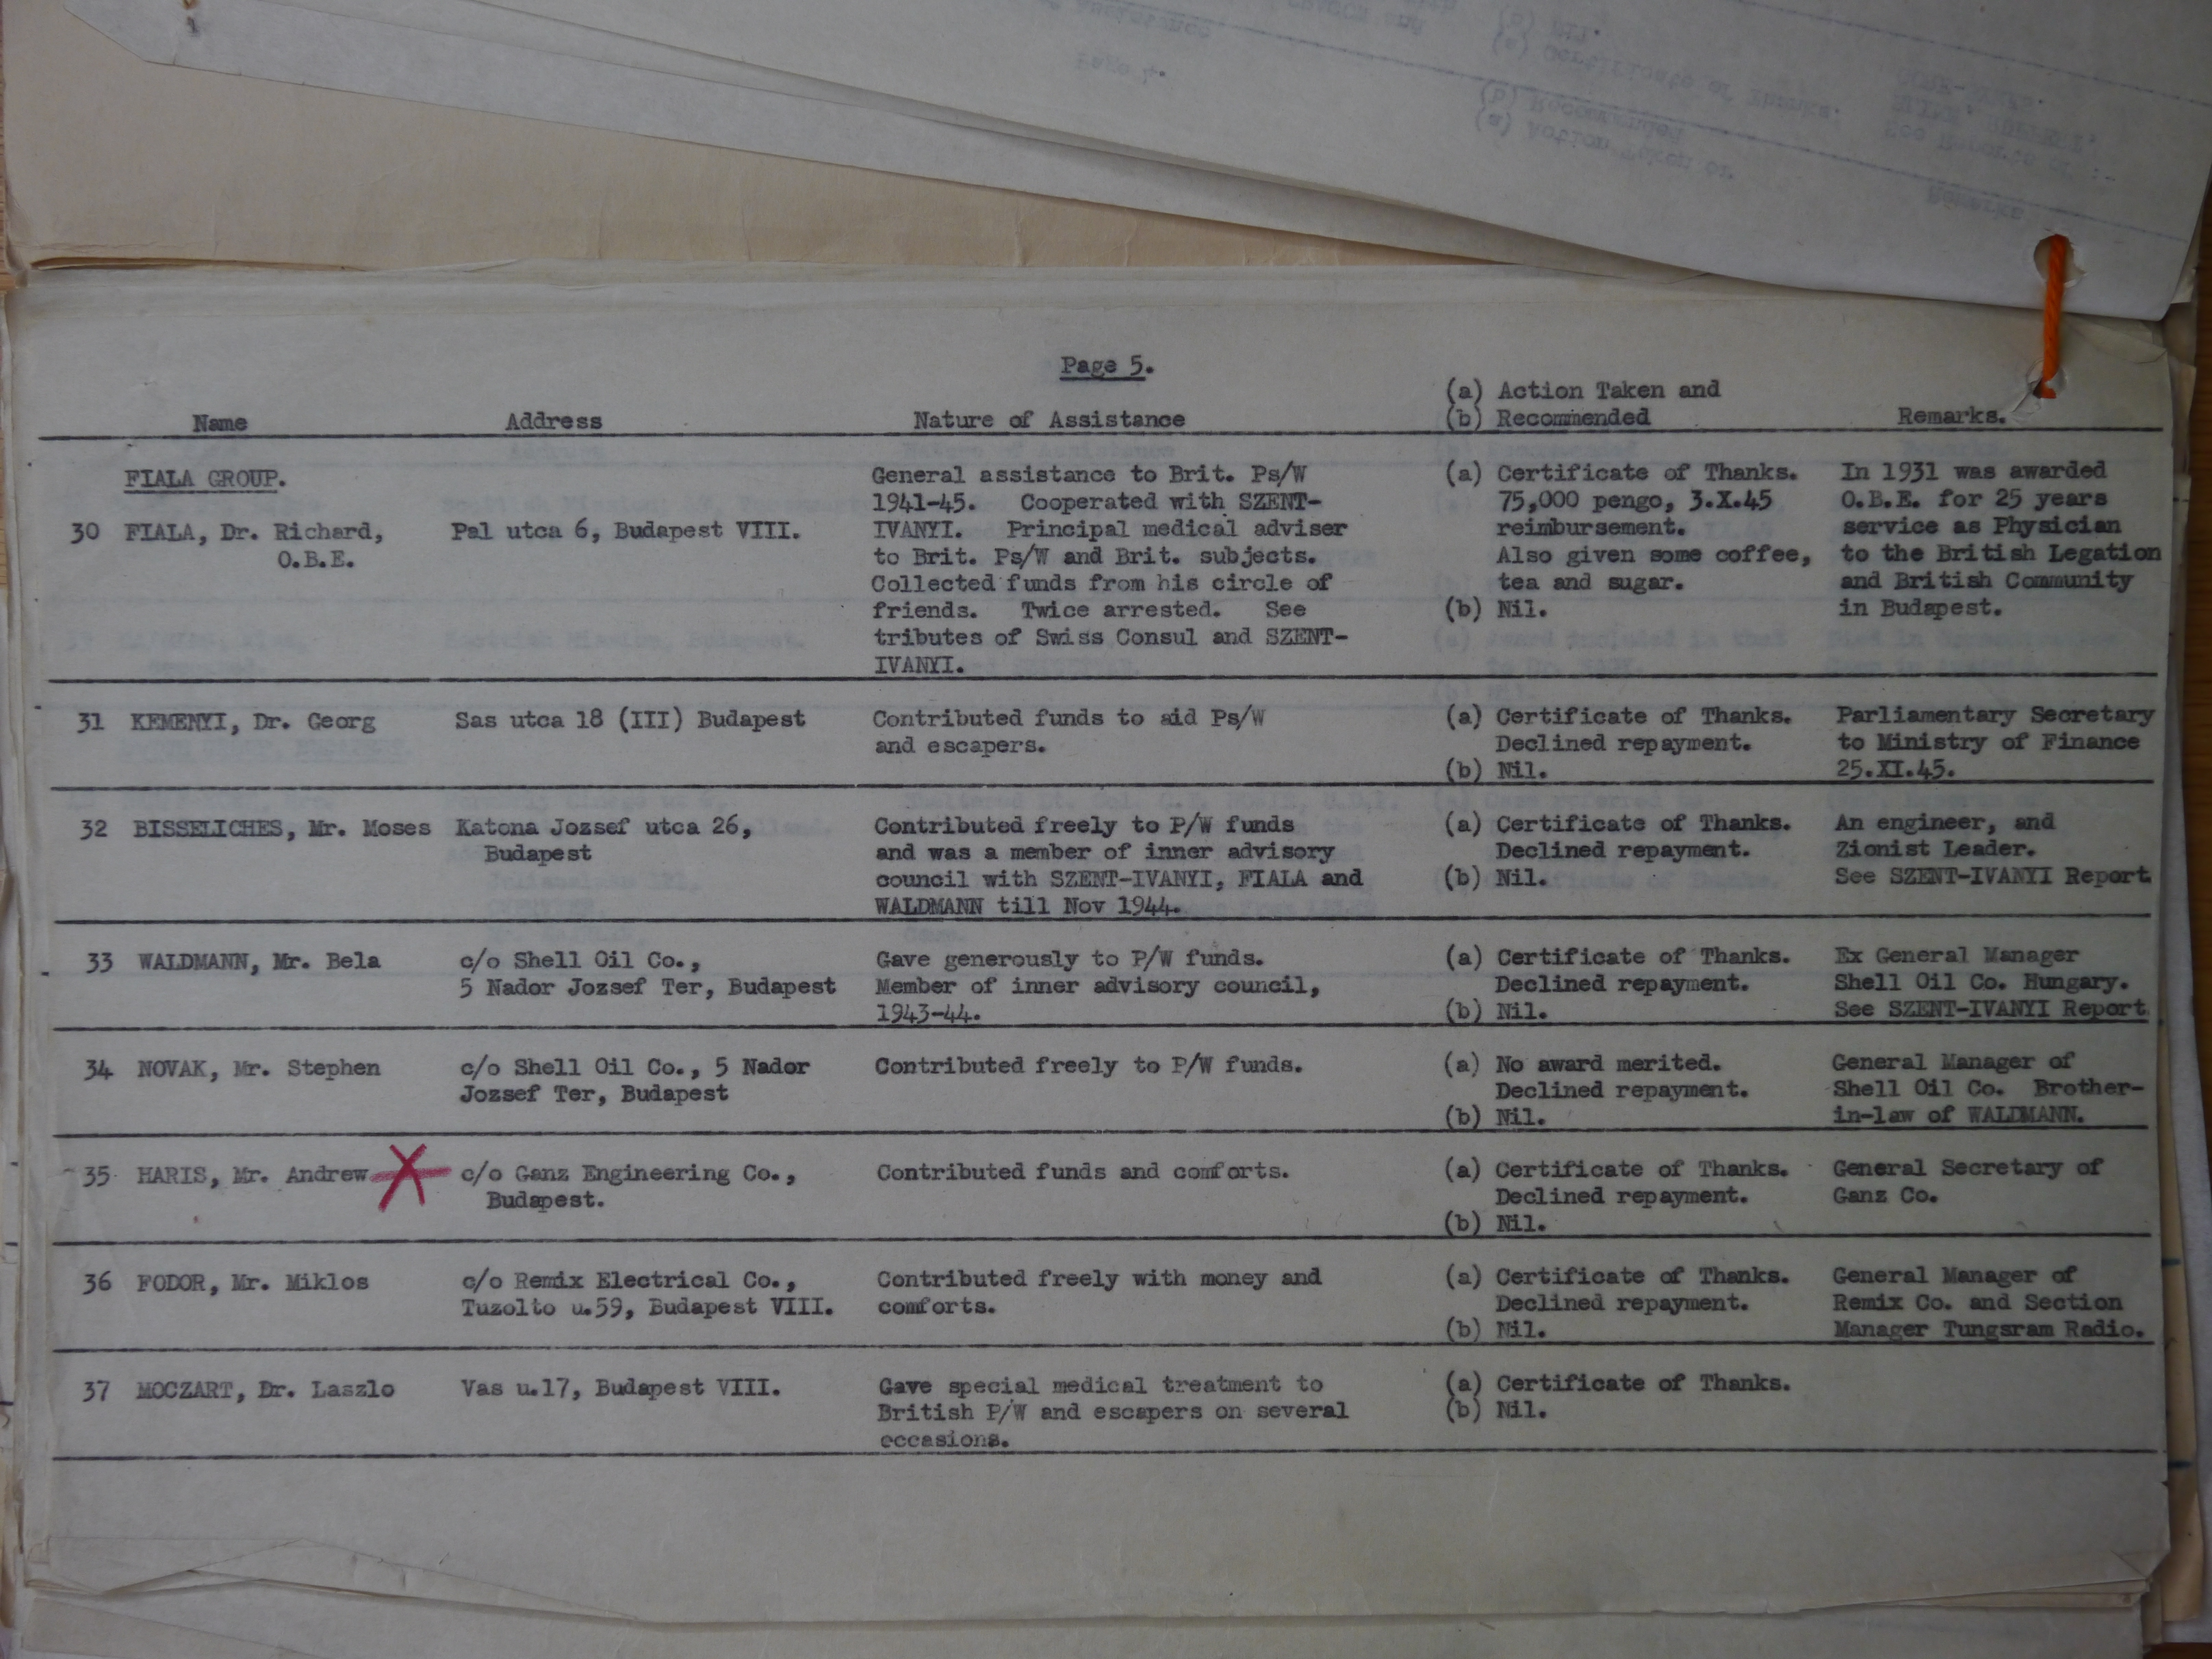 Page 5.
Name
Address
Nature of Assistance
(a) Action Taken and
(b) Recommended
Remarks.
FIALA GROUP.
30 FIALA, Dr. Richard,
O.B.E.
Pal utca 6, Budapest VIII.
General assistance to Brit. Ps/W
1941-45. Cooperated with SZENT-
IVANYI. Principal medical adviser
to Brit. Ps/W and Brit. subjects.
Collected funds from his circle of
friends. Twice arrested. See
tributes of Swiss Consul and SZENT-
IVANYI.
(a) Certificate of Thanks.
75,000 pengo, 3.X.45
reimbursement.
Also given some coffee,
tea and sugar.
(b) Nil.
In 1931 was awarded
O.B.E. for 25 years
service as Physician
to the British Legation
and British Community
in Budapest.
31 KEMENYI, Dr. Georg
Sas utca 18 (III) Budapest
Contributed funds to aid Ps/W
and escapers.
(a) Certificate of Thanks.
Declined repayment.
(b) Nil.
Parliamentary Secretary
to Ministry of Finance
25.XI.45.
32 BISSELICHES, Mr. Moses
Katona Jozsef utca 26,
Budapest
Contributed freely to P/W funds
and was a member of inner advisory
council with SZENT-IVANYI, FIALA and
WALDMANN till Nov 1944.
(a) Certificate of Thanks.
Declined repayment.
(b) Nil.
An engineer, and
Zionist Leader.
See SZENT-IVANYI Report
33 WALDMANN, Mr. Bela
c/o Shell Oil Co.,
5 Nador Jozsef Ter, Budapest
Gave generously to P/W funds.
Member of inner advisory council,
1943-44.
(a) Certificate of Thanks.
Declined repayment.
(b) Nil.
Ex General Manager
Shell Oil Co. Hungary.
See SZENT-IVANYI Report
34 NOVAK, Mr. Stephen
c/o Shell Oil Co., 5 Nador
Jozsef Ter, Budapest
Contributed freely to P/W funds.
(a) No award merited.
Declined repayment.
(b) Nil.
General Manager of
Shell Oil Co. Brother-
in-law of WALDMANN.
35 HARIS, Mr. Andrew
c/o Ganz Engineering Co.,
Budapest.
Contributed funds and comforts.
(a) Certificate of Thanks.
Declined repayment.
(b) Nil.
General Secretary of
Ganz Co.
36 FODOR, Mr. Miklos
c/o Remix Electrical Co.,
Tuzolto u.59, Budapest VIII.
Contributed freely with money and
comforts.
(a) Certificate of Thanks.
Declined repayment.
(b) Nil.
General Manager of
Remix Co. and Section
Manager Tungsram Radio.
37 MOCZART, Dr. Laszlo
Vas u.17, Budapest VIII.
Gave special medical treatment to
British P/W and escapers on several
occasions.
(a) Certificate of Thanks.
(b) Nil.